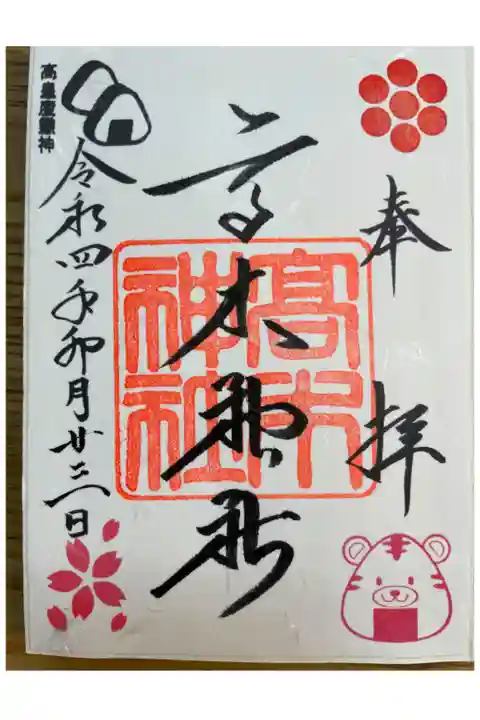 奉拝
高木神社
高木神社
高皇産靈神
令和四年卯月廿三日